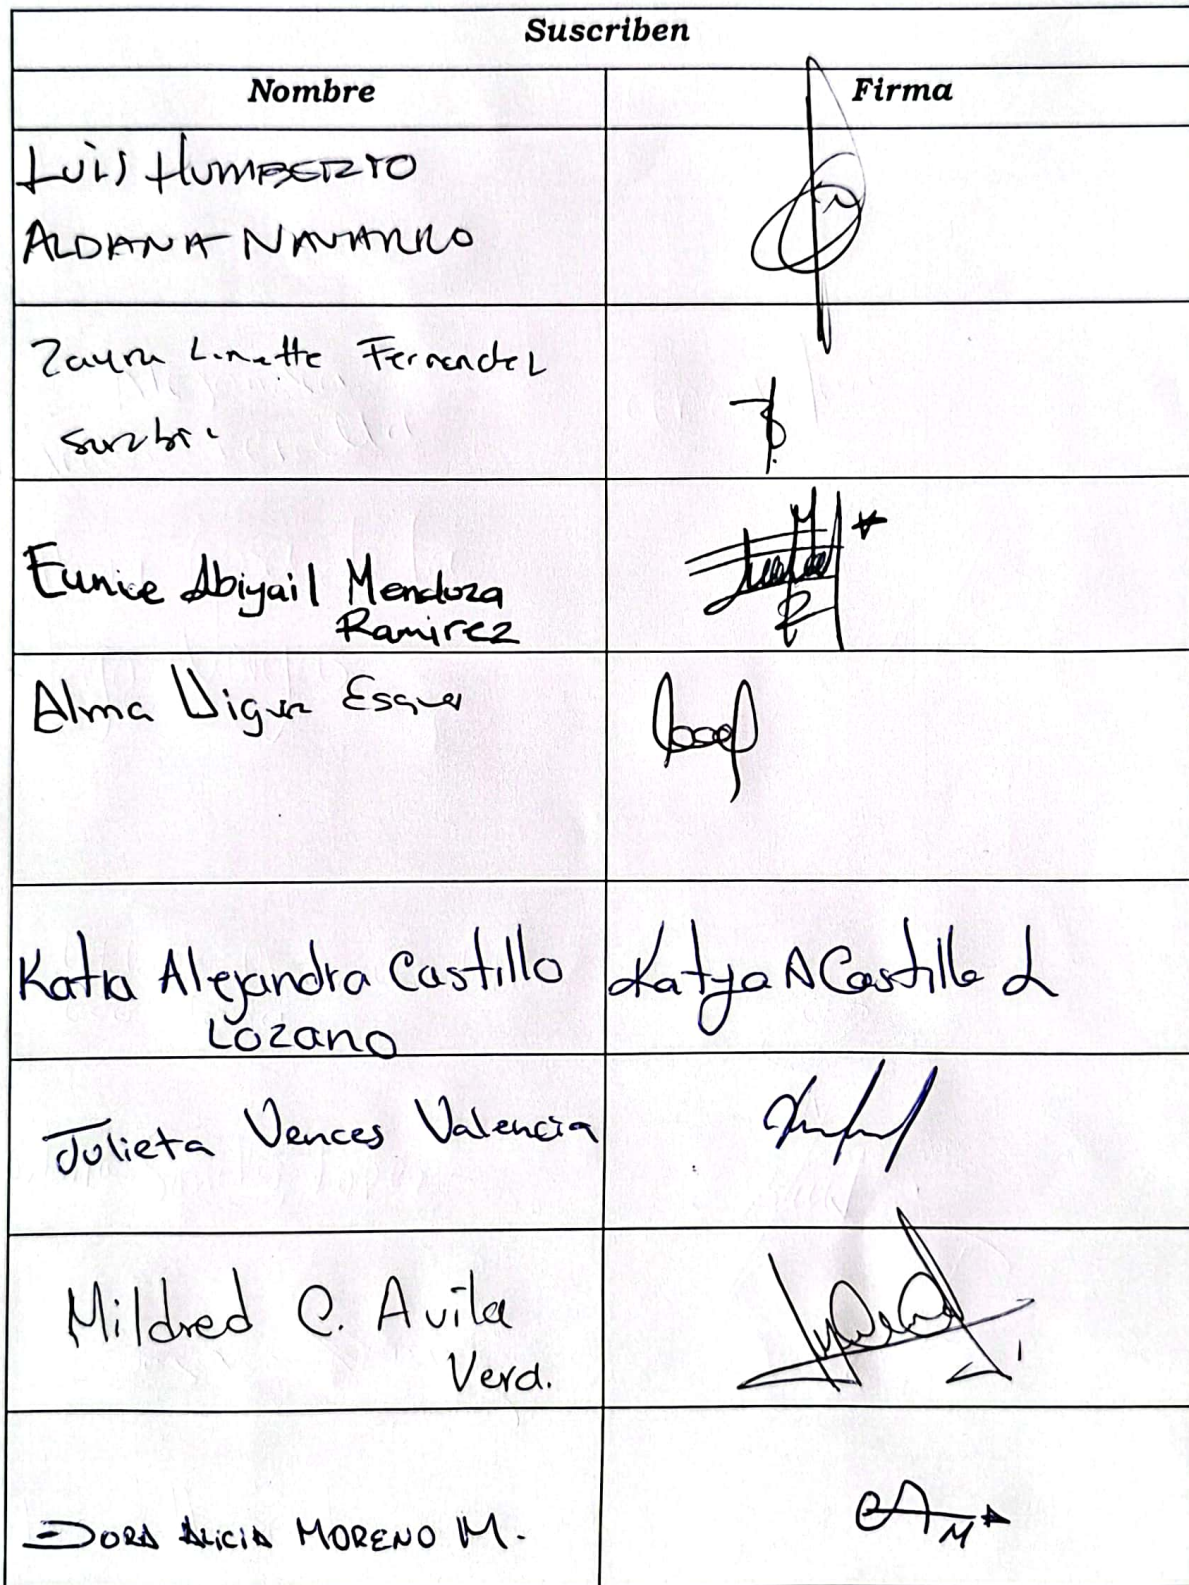 Suscriben
Nombre Firma
LUIS HUMBERTO
ALDANA NAVARRO
Zayra Linette Fernandez
Eunice Abigail Mendoza
Ramirez
Alma Vigur Esquer
Katia Alejandra Castillo Katya A Castillo L
Lozano
Julieta Vences Valencia
Mildred C. Avila
Verd.
DORA ALICIA MORENO M.